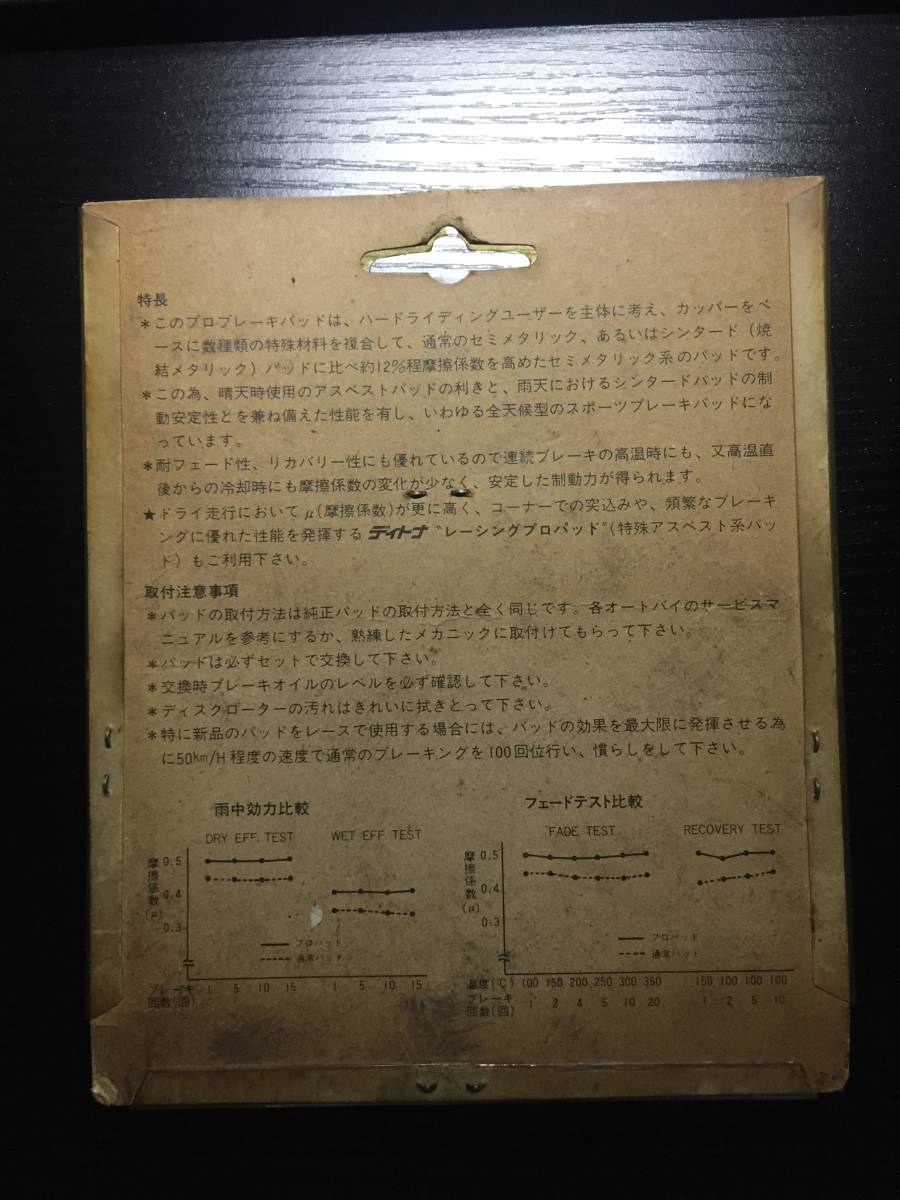 特長
＊このプロブレーキパッドは、ハードライディングユーザーを主体に考え、カッパーをベ
ースに数種類の特殊材料を複合して、通常のセミメタリック、あるいはシンタード（焼
結メタリック）パッドに比べ約12%程摩擦係数を高めたセミメタリック系のパッドです。
＊この為、晴天時使用のアスベストパッドの利きと、雨天におけるシンタードパッドの制
動安定性とを兼ね備えた性能を有し、いわゆる全天候型のスポーツブレーキパッドにな
っています。
＊耐フェード性、リカバリー性にも優れているので連続ブレーキの高温時にも、又高温直
後からの冷却時にも摩擦係数の変化が少なく、安定した制動力が得られます。
★ドライ走行においてμ(摩擦係数)が更に高く、コーナーでの突込みや、頻繁なブレーキ
ングに優れた性能を発揮するデイトナ“レーシングプロパッド”(特殊アスベスト系パッ
ド）もご利用下さい。
取付注意事項
＊パッドの取付方法は純正パッドの取付方法と全く同じです。各オートバイのサービスマ
ニュアルを参考にするか、熟練したメカニックに取付けてもらって下さい。
＊パッドは必ずセットで交換して下さい。
＊交換時ブレーキオイルのレベルを必ず確認して下さい。
＊ディスクローターの汚れはきれいに拭きとって下さい。
＊特に新品のパッドをレースで使用する場合には、パッドの効果を最大限に発揮させる為
に50km/H程度の速度で通常のブレーキングを100回位行い、慣らしをして下さい。
雨中効力比較
DRY EFF. TEST WET EFF. TEST
摩擦係数(μ)
0.5
0.4
0.3
プロパッド
通常パッド
ブレーキ回数(回) 1 5 10 15 1 5 10 15
フェードテスト比較
FADE TEST RECOVERY TEST
摩擦係数(μ)
0.5
0.4
0.3
プロパッド
通常パッド
温度(℃) 100 150 200 250 300 350 150 100 100 100
ブレーキ回数(回) 1 2 4 5 10 20 1 2 5 10